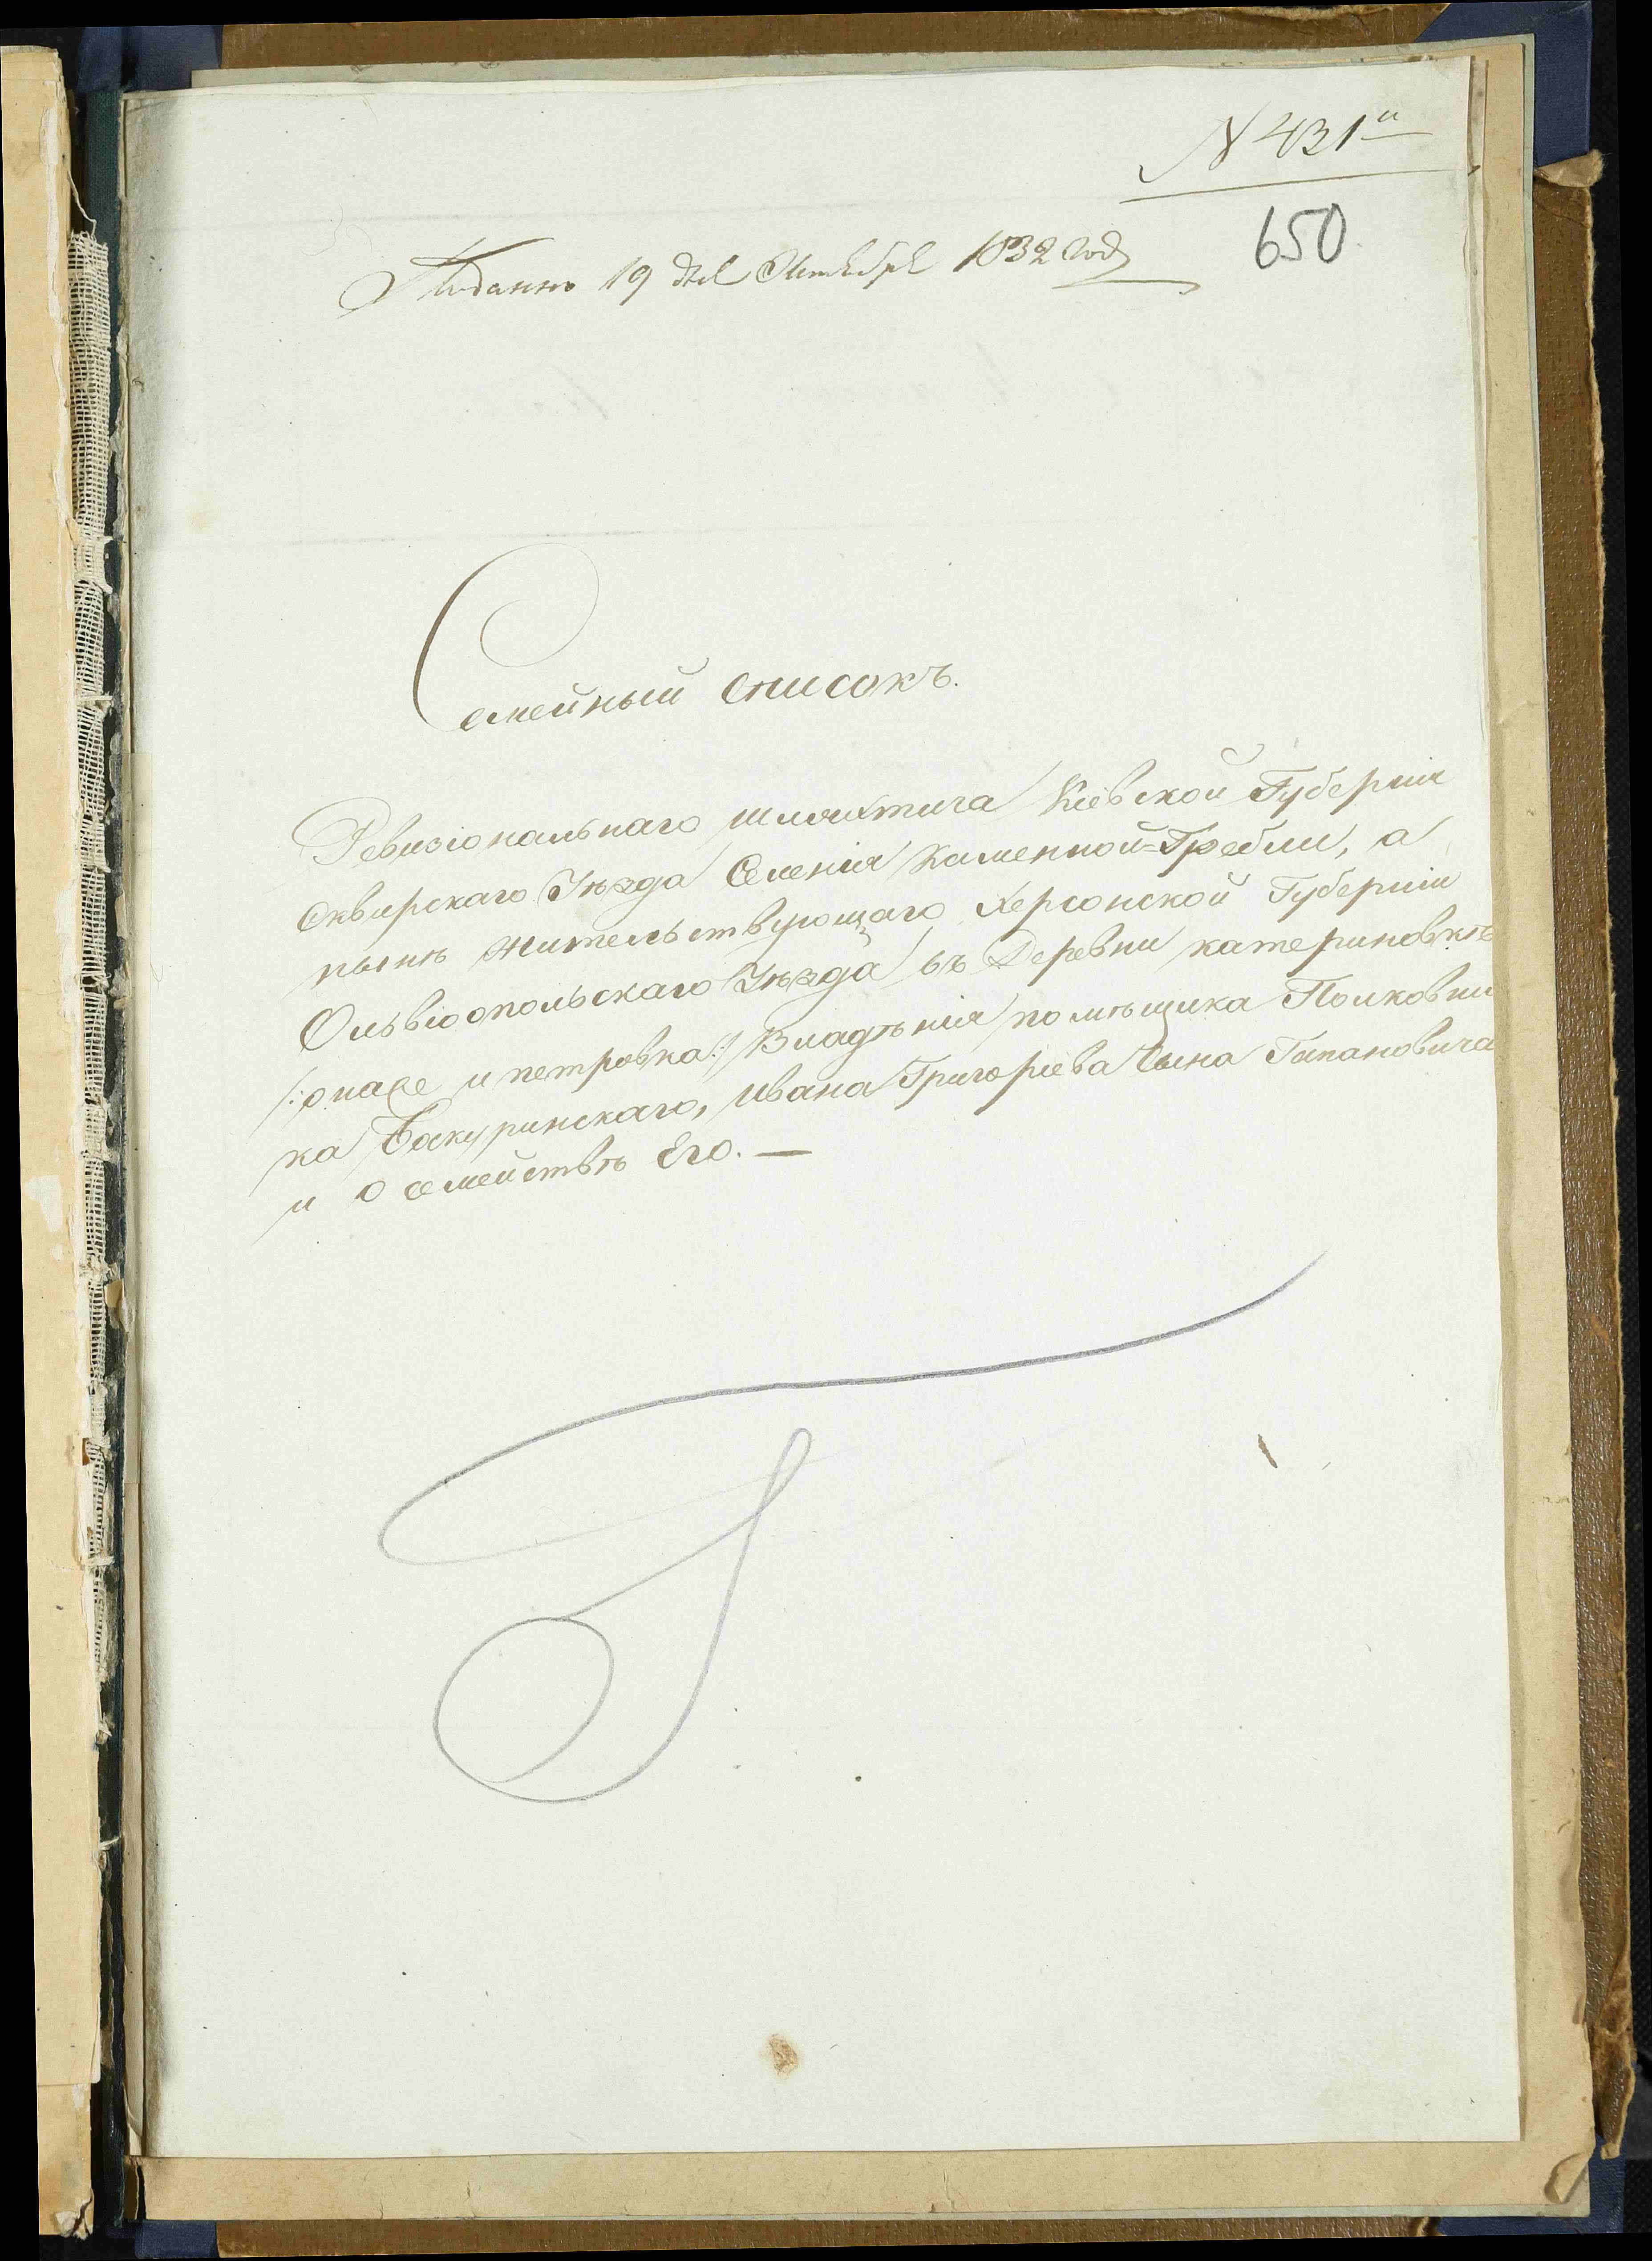 N 431й
650
Подань 19 дня Октября 1832 года
Семейный список.
Ревизіональнаго шляхтича Кіевской Губерніи
Сквирскаго Уѣзда Селенія Каменной=Гребли, а
нынѣ жительствующаго Херсонской Губерніи
Ольвіопольскаго Уѣзда въ Деревни катериновкѣ
/: онаже и петровка :/ Владѣнія помѣщика Полковни
ка Бакуринскаго, ивана Григоріева сына Гапановича
и о семействѣ Его. —